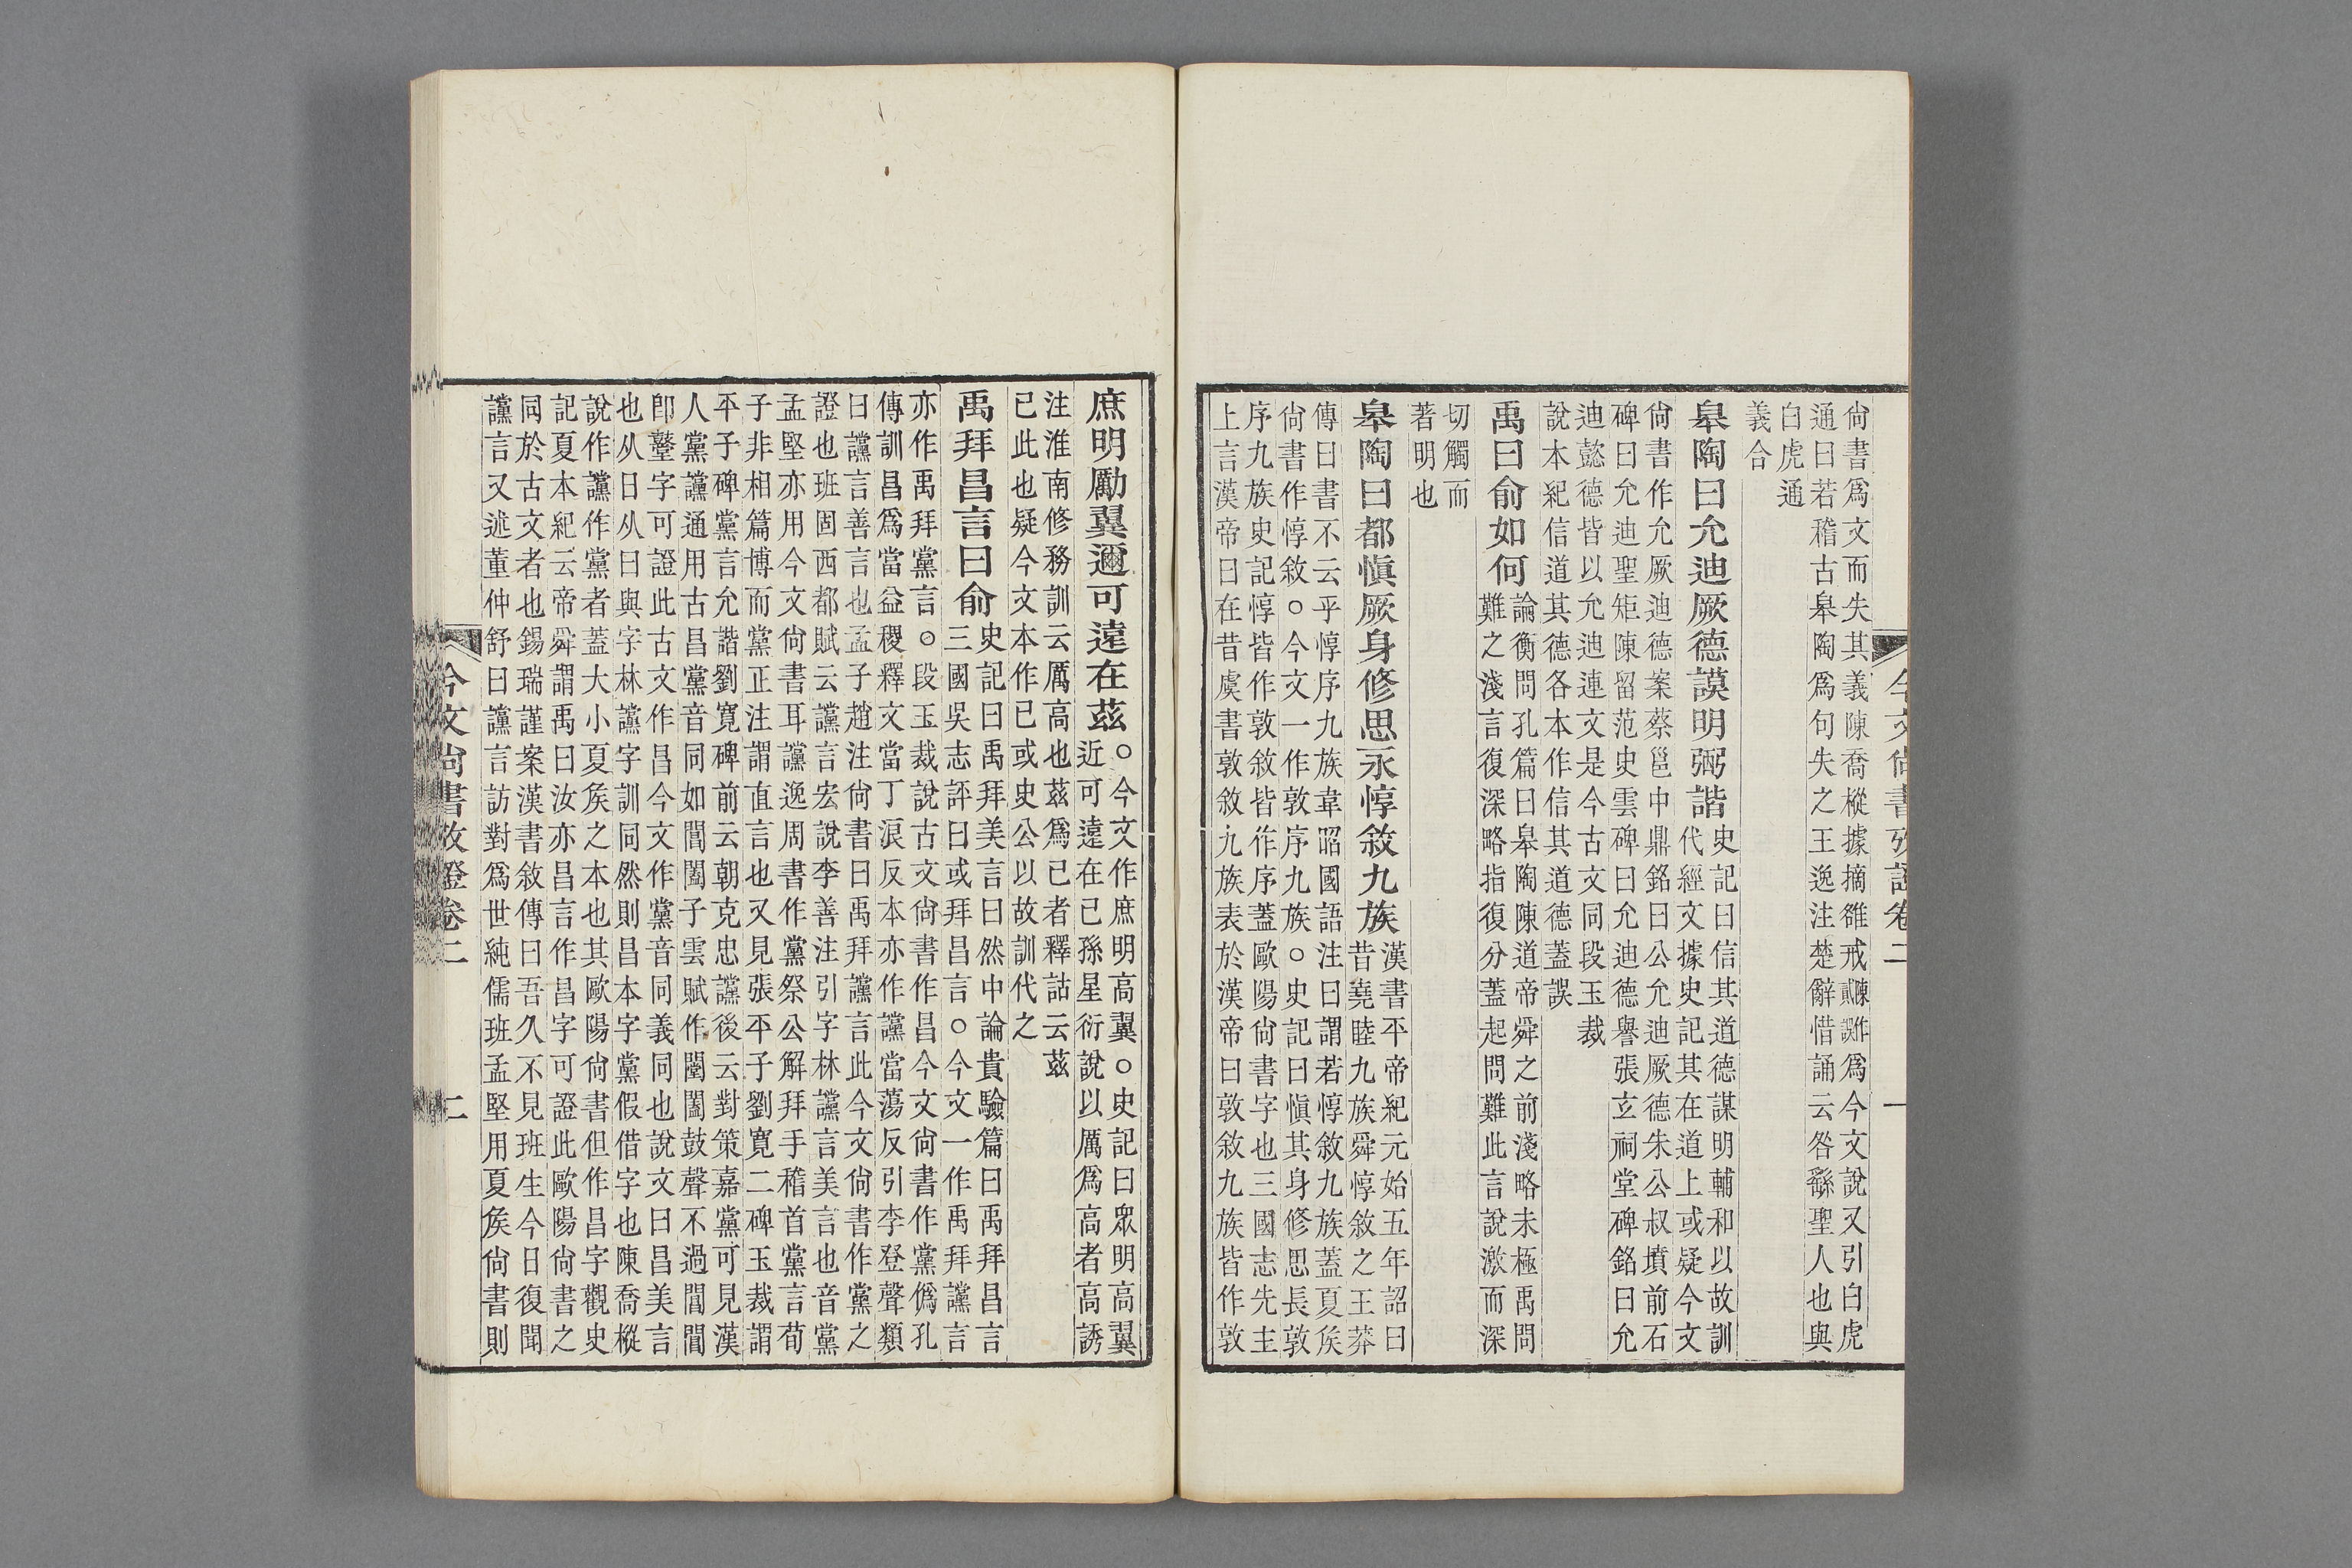 今文尙書攷證卷二
一
尙書爲文而失其義陳喬樅據摘雒戒貳陳作謨爲今文說又引白虎
通曰若稽古皋陶爲句失之王逸注楚辭惜誦云咎繇聖人也與
白虎通
義合
皋陶曰允迪厥德謨明弼諧
史記曰信其道德謀明輔和以故訓
代經文據史記其在道上或疑今文
尙書作允厥迪德案蔡邕中鼎銘曰公允迪厥德朱公叔墳前石
碑曰允迪聖矩陳留范史雲碑曰允迪德譽張玄祠堂碑銘曰允
迪懿德皆以允迪連文是今古文同段玉裁
說本紀信道其德各本作信其道德蓋誤
禹曰俞如何
論衡問孔篇曰皋陶陳道帝舜之前淺略未極禹問
難之淺言復深略指復分蓋起問難此言說激而深
切觸而
著明也
皋陶曰都愼厥身修思永惇敘九族
漢書平帝紀元始五年詔曰
昔堯睦九族舜惇敘之王莽
傳曰書不云乎惇序九族韋昭國語注曰謂若惇敘九族蓋夏侯
尙書作惇敘○今文一作敦序九族○史記曰愼其身修思長敦
序九族史記惇皆作敦敘皆作序蓋歐陽尙書字也三國志先主
上言漢帝曰在昔虞書敦敘九族表於漢帝曰敦敘九族皆作敦
庶明勵翼邇可遠在茲
○今文作庶明高翼○史記曰眾明高翼
近可遠在已孫星衍說以厲爲高者高誘
注淮南修務訓云厲高也茲爲已者釋詁云茲
已此也疑今文本作已或史公以故訓代之
禹拜昌言曰俞
史記曰禹拜美言曰然中論貴驗篇曰禹拜昌言
三國吳志評曰或拜昌言○今文一作禹拜讜言
亦作禹拜黨言○段玉裁說古文尙書作昌今文尙書作黨僞孔
傳訓昌爲當益稷釋文當丁浪反本亦作讜當蕩反引李登聲類
曰讜言善言也孟子趙注尙書曰禹拜讜言此今文尙書作黨之
證也班固西都賦云讜言宏說李善注引字林讜言美言也音黨
孟堅亦用今文尙書耳讜逸周書作黨祭公解拜手稽首黨言荀
子非相篇博而黨正注謂直言也又見張平子劉寬二碑玉裁謂
平子碑黨言允諧劉寬碑前云朝克忠讜後云對策嘉黨可見漢
人黨讜通用古昌黨音同如閶闔子雲賦作闛闔鼓聲不過閶閶
卽鼞字可證此古文作昌今文作黨音同義同也說文曰昌美言
也从日从曰與字林讜字訓同然則昌本字黨假借字也陳喬樅
說作讜作黨者蓋大小夏侯之本也其歐陽尙書但作昌字觀史
記夏本紀云帝舜謂禹曰汝亦昌言作昌字可證此歐陽尙書之
同於古文者也錫瑞謹案漢書敘傳曰吾久不見班生今日復聞
讜言又述董仲舒曰讜言訪對爲世純儒班孟堅用夏侯尙書則
今文尙書攷證卷二
二